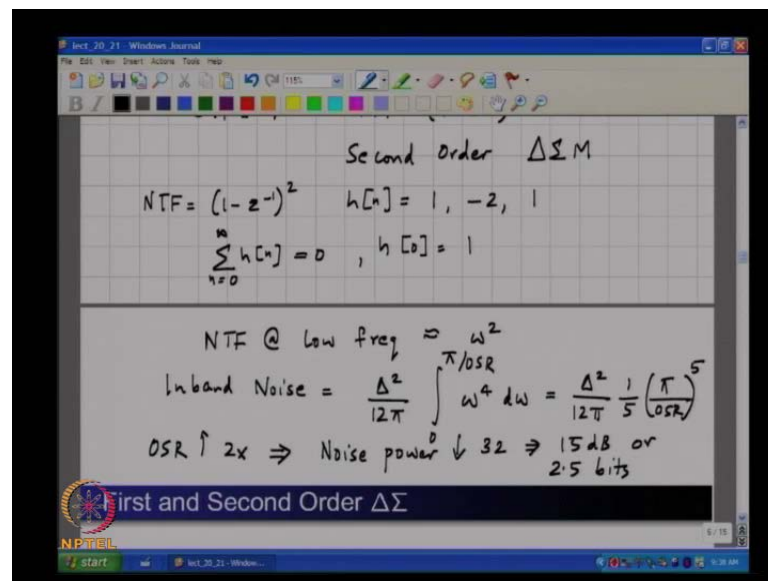 lect_20_21 - Windows Journal
File Edit View Insert Actions Tools Help
115%
B I
Second Order ΔΣM
NTF = (1 - z⁻¹)² h[n] = 1, -2, 1
∞
∑ h[n] = 0 , h[0] = 1
n=0
NTF @ Low freq ≈ ω²
Inband Noise = Δ²/12π ∫₀^(π/OSR) ω⁴ dω = Δ²/12π 1/5 (π/OSR)⁵
OSR ↑ 2x ⇒ Noise power ↓ 32 ⇒ 15 dB or
2.5 bits
First and Second Order ΔΣ
NPTEL
6/15
start
lect_20_21 - Window...
9:38 AM